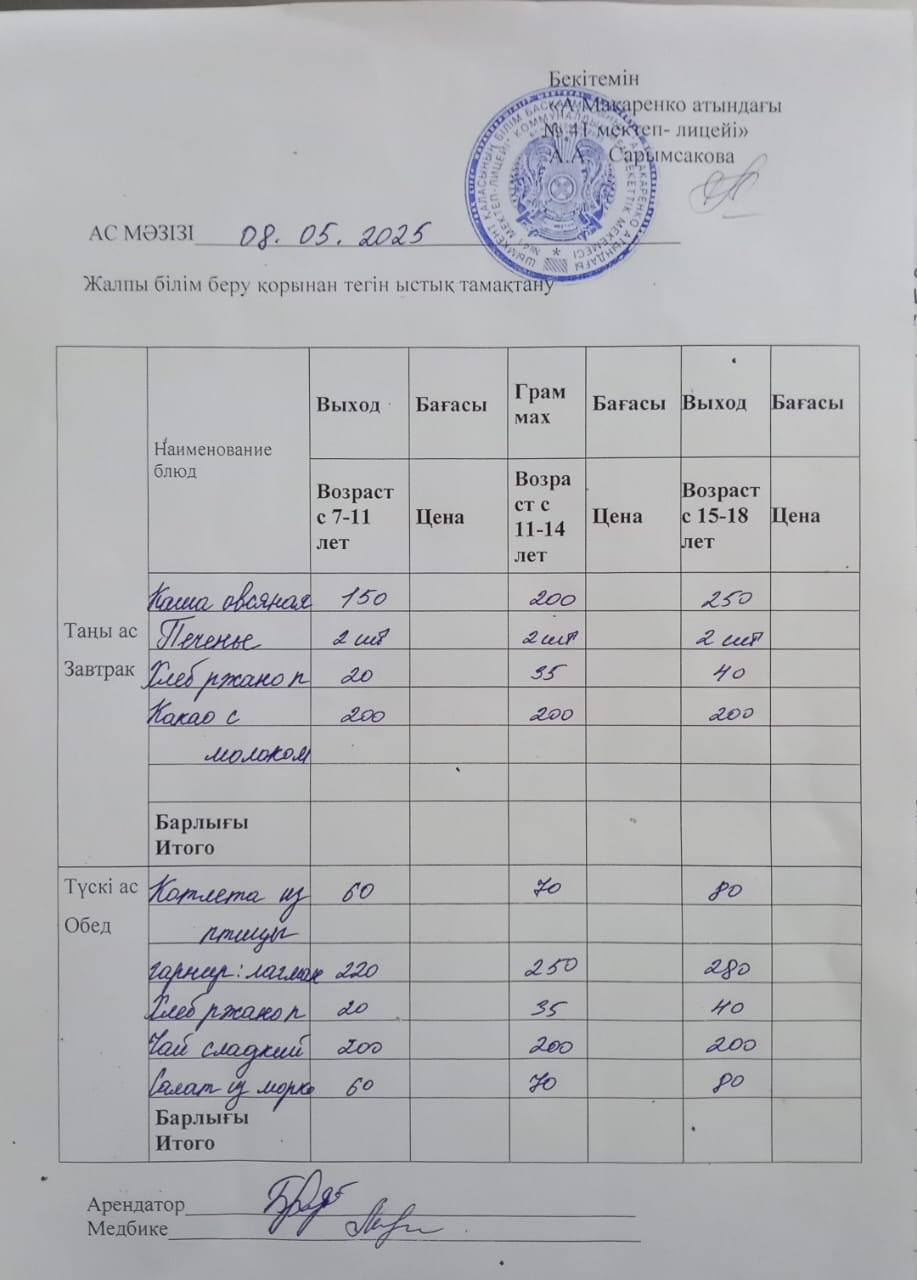 Бекітемін
«А Макаренко атындағы
№ 41 мектеп- лицейі»
А.А. Сарымсакова
АС МӘЗІЗІ 08. 05. 2025
Жалпы білім беру қорынан тегін ыстық тамақтану
Наименование блюд
Выход Бағасы Грам мах Бағасы Выход Бағасы
Возраст с 7-11 лет Цена Возра ст с 11-14 лет Цена Возраст с 15-18 лет Цена
Таңы ас
Завтрак
Каша овсяная 150 200 250
Печенье 2 шт 2 шт 2 шт
Хлеб ржано п 20 35 40
Какао с 200 200 200
молоком
Барлығы
Итого
Түскі ас
Обед
Котлета из 60 70 80
птицы
гарнир: лагман 220 250 280
Хлеб ржано п 20 35 40
Чай сладкий 200 200 200
Салат из морко 60 70 80
Барлығы
Итого
Арендатор
Медбике